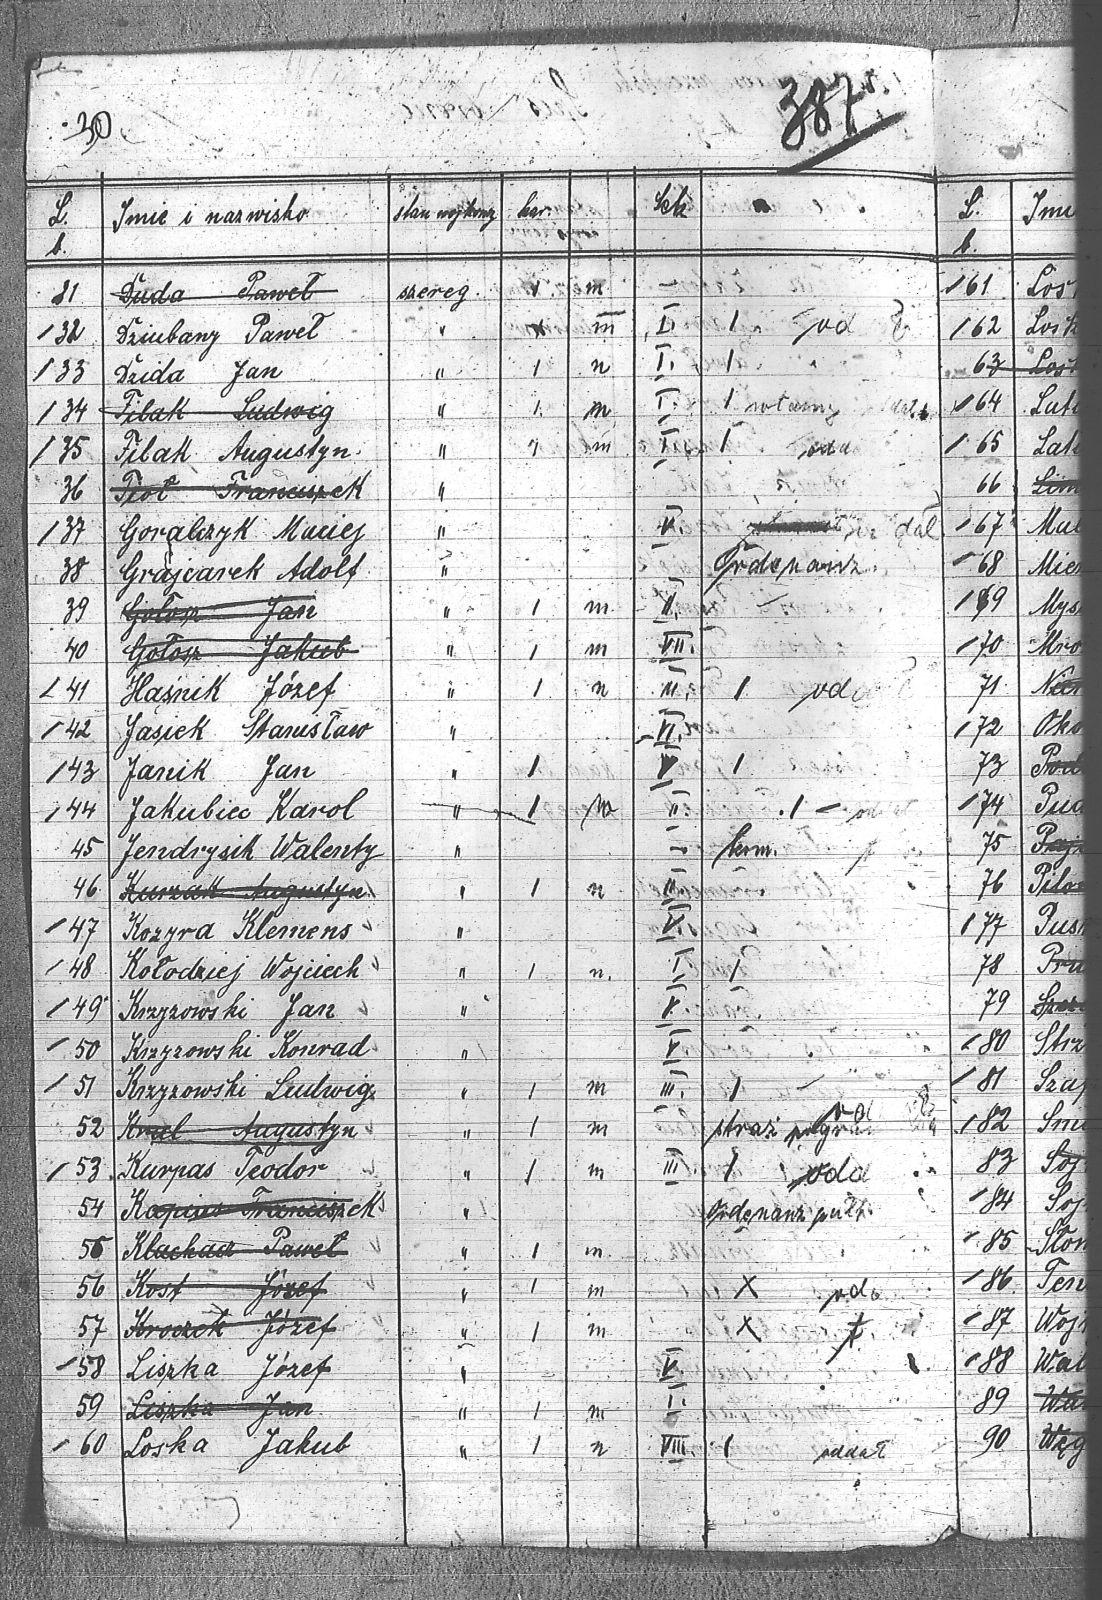 30
387
L. b. Imie i nazwisko stan wojskowy kar. Sek L. b. Imi
31 Duda Paweł szereg. 1 m — 161 Losk
132 Dziubany Paweł " x m I. 1. od 162 Losk
133 Dzida Jan " 1 n I. 1 63 Losk
134 Filak Ludwig " 1. m I. 1 164
135 Filak Augustyn. " 1 m I 1 oda 165
36 Fioł Franciszek " 66
137 Goralczyk Maciej " V. dał 167
38 Grajcarek Adolf " Ordenanz. 68 Mier
39 Gołosz Jan " 1 m II. — 169 Mys
40 Gołosz Jakub " 1 m VII. 170 Mro
41 Haśnik Józef " 1 n III. 1 oda 71
142 Jasiek Stanisław " VI. 172 Oko
143 Janik Jan " 1 V 1 73
144 Jakubiec Karol " 1 m II .1 — od 174
45 Jendrysik Walenty " — kom. 75
46 Kurzak Augustyn " 1 n III 76 Pilo
147 Kozyra Klemens " V. 177 Pus
48 Kołodziej Wojciech " 1 n. I. 1 78 Pru
149 Krzyzowski Jan " V. 79
150 Krzyzowski Konrad " V 180 Strz
151 Krzyzowski Ludwig " 1 m III. 1 — 181 Szaf
52 Kral Augustyn " 1 m straż oda 182 Smi
153. Kurpas Teodor " 1 m III 1 odd 83 Soj
54 Kapias Franciszek " Ordenanz pułk. 84 Soj
55 Klachacz Paweł " 1 m. 85 Słom
56 Kost Józef " 1 m X oda 186. Ten
57 Kroczek Józef " 1 m X 187 Wojt
158 Liszka Józef " V 188 Wal
59 Liszka Jan " 1 m I. 89
160 Loska Jakub " 1 n VIII 1 oddał 90 Węg